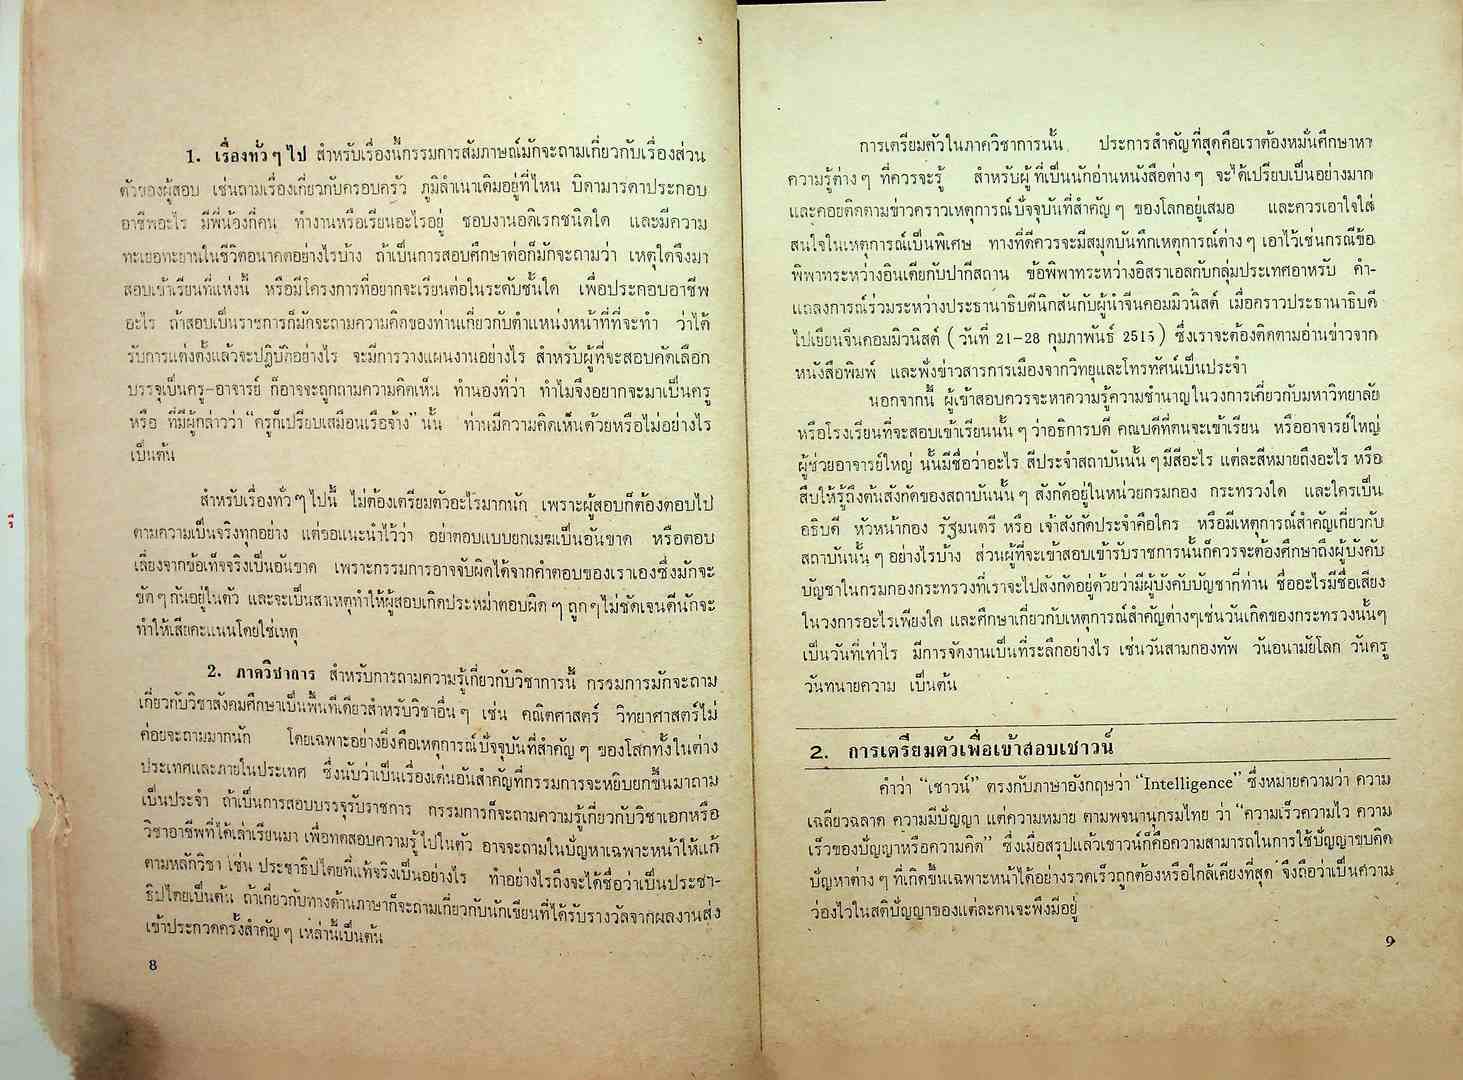 1. เรื่องทั่ว ๆ ไป สำหรับเรื่องนี้กรรมการสัมภาษณ์มักจะถามเกี่ยวกับเรื่องส่วน
ตัวของผู้สอบ เช่นถามเรื่องเกี่ยวกับครอบครัว ภูมิลำเนาเดิมอยู่ที่ไหน บิดามารดาประกอบ
อาชีพอะไร มีพี่น้องกี่คน ทำงานหรือเรียนอะไรอยู่ ชอบงานอดิเรกชนิดใด และมีความ
ทะเยอทะยานในชีวิตอนาคตอย่างไรบ้าง ถ้าเป็นการสอบศึกษาต่อก็มักจะถามว่า เหตุใดจึงมา
สอบเข้าเรียนที่แห่งนี้ หรือมีโครงการที่อยากจะเรียนต่อในระดับชั้นใด เพื่อประกอบอาชีพ
อะไร ถ้าสอบเป็นราชการก็มักจะถามความคิดของท่านเกี่ยวกับตำแหน่งหน้าที่ที่จะทำ ว่าได้
รับการแต่งตั้งแล้วจะปฏิบัติอย่างไร จะมีการวางแผนงานอย่างไร สำหรับผู้ที่จะสอบคัดเลือก
บรรจุเป็นครู-อาจารย์ ก็อาจจะถูกถามความคิดเห็น ทำนองที่ว่า ทำไมจึงอยากจะมาเป็นครู
หรือ ที่มีผู้กล่าวว่า “ครูก็เปรียบเสมือนเรือจ้าง” นั้น ท่านมีความคิดเห็นด้วยหรือไม่อย่างไร
เป็นต้น
สำหรับเรื่องทั่ว ๆ ไปนี้ ไม่ต้องเตรียมตัวอะไรมากนัก เพราะผู้สอบก็ต้องตอบไป
ตามความเป็นจริงทุกอย่าง แต่ขอแนะนำไว้ว่า อย่าตอบแบบยกเมฆเป็นอันขาด หรือตอบ
เลี่ยงจากข้อเท็จจริงเป็นอันขาด เพราะกรรมการอาจจับผิดได้จากคำตอบของเราเองซึ่งมักจะ
ขัด ๆ กันอยู่ในตัว และจะเป็นสาเหตุทำให้ผู้สอบเกิดประหม่าตอบผิด ๆ ถูก ๆ ไม่ชัดเจนดีนักจะ
ทำให้เสียคะแนนโดยใช่เหตุ
2. ภาควิชาการ สำหรับการถามความรู้เกี่ยวกับวิชาการนี้ กรรมการมักจะถาม
เกี่ยวกับวิชาสังคมศึกษาเป็นพื้นทีเดียวสำหรับวิชาอื่น ๆ เช่น คณิตศาสตร์ วิทยาศาสตร์ไม่
ค่อยจะถามมากนัก โดยเฉพาะอย่างยิ่งคือเหตุการณ์ปัจจุบันที่สำคัญ ๆ ของโลกทั้งในต่าง
ประเทศและภายในประเทศ ซึ่งนับว่าเป็นเรื่องเด่นอันสำคัญที่กรรมการจะหยิบยกขึ้นมาถาม
เป็นประจำ ถ้าเป็นการสอบบรรจุรับราชการ กรรมการก็จะถามความรู้เกี่ยวกับวิชาเอกหรือ
วิชาอาชีพที่ได้เล่าเรียนมา เพื่อทดสอบความรู้ไปในตัว อาจจะถามในปัญหาเฉพาะหน้าให้แก้
ตามหลักวิชา เช่น ประชาธิปไตยที่แท้จริงเป็นอย่างไร ทำอย่างไรถึงจะได้ชื่อว่าเป็นประชา-
ธิปไตยเป็นต้น ถ้าเกี่ยวกับทางด้านภาษาก็จะถามเกี่ยวกับนักเขียนที่ได้รับรางวัลจากผลงานส่ง
เข้าประกวดครั้งสำคัญ ๆ เหล่านี้เป็นต้น
8
การเตรียมตัวในภาควิชาการนั้น ประการสำคัญที่สุดคือเราต้องหมั่นศึกษาหา
ความรู้ต่าง ๆ ที่ควรจะรู้ สำหรับผู้ที่เป็นนักอ่านหนังสือต่าง ๆ จะได้เปรียบเป็นอย่างมาก
และคอยติดตามข่าวคราวเหตุการณ์ปัจจุบันที่สำคัญ ๆ ของโลกอยู่เสมอ และควรเอาใจใส่
สนใจในเหตุการณ์เป็นพิเศษ ทางที่ดีควรจะมีสมุดบันทึกเหตุการณ์ต่าง ๆ เอาไว้เช่นกรณีข้อ
พิพาทระหว่างอินเดียกับปากีสถาน ข้อพิพาทระหว่างอิสราเอลกับกลุ่มประเทศอาหรับ คำ-
แถลงการณ์ร่วมระหว่างประธานาธิบดีนิกสันกับผู้นำจีนคอมมิวนิสต์ เมื่อคราวประธานาธิบดี
ไปเยือนจีนคอมมิวนิสต์ ( วันที่ 21-28 กุมภาพันธ์ 2515 ) ซึ่งเราจะต้องติดตามอ่านข่าวจาก
หนังสือพิมพ์ และฟังข่าวสารการเมืองจากวิทยุและโทรทัศน์เป็นประจำ
นอกจากนี้ ผู้เข้าสอบควรจะหาความรู้ความชำนาญในวงการเกี่ยวกับมหาวิทยาลัย
หรือโรงเรียนที่จะสอบเข้าเรียนนั้น ๆ ว่าอธิการบดี คณบดีที่ตนจะเข้าเรียน หรืออาจารย์ใหญ่
ผู้ช่วยอาจารย์ใหญ่ นั้นมีชื่อว่าอะไร สีประจำสถาบันนั้น ๆ มีสีอะไร แต่ละสีหมายถึงอะไร หรือ
สืบให้รู้ถึงต้นสังกัดของสถาบันนั้น ๆ สังกัดอยู่ในหน่วยกรมกอง กระทรวงใด และใครเป็น
อธิบดี หัวหน้ากอง รัฐมนตรี หรือ เจ้าสังกัดประจำคือใคร หรือมีเหตุการณ์สำคัญเกี่ยวกับ
สถาบันนั้น ๆ อย่างไรบ้าง ส่วนผู้ที่จะเข้าสอบเข้ารับราชการนั้นก็ควรจะต้องศึกษาถึงผู้บังคับ
บัญชาในกรมกองกระทรวงที่เราจะไปสังกัดอยู่ด้วยว่ามีผู้บังคับบัญชากี่ท่าน ชื่ออะไรมีชื่อเสียง
ในวงการอะไรเพียงใด และศึกษาเกี่ยวกับเหตุการณ์สำคัญต่างๆเช่นวันเกิดของกระทรวงนั้นๆ
เป็นวันที่เท่าไร มีการจัดงานเป็นที่ระลึกอย่างไร เช่นวันสามกองทัพ วันอนามัยโลก วันครู
วันทนายความ เป็นต้น
2. การเตรียมตัวเพื่อเข้าสอบเชาวน์
คำว่า “เชาวน์” ตรงกับภาษาอังกฤษว่า “Intelligence” ซึ่งหมายความว่า ความ
เฉลียวฉลาด ความมีปัญญา แต่ความหมาย ตามพจนานุกรมไทย ว่า “ความเร็วความไว ความ
เร็วของปัญญาหรือความคิด” ซึ่งเมื่อสรุปแล้วเชาวน์ก็คือความสามารถในการใช้ปัญญาขบคิด
ปัญหาต่าง ๆ ที่เกิดขึ้นเฉพาะหน้าได้อย่างรวดเร็วถูกต้องหรือใกล้เคียงที่สุด จึงถือว่าเป็นความ
ว่องไวในสติปัญญาของแต่ละคนจะพึงมีอยู่
9